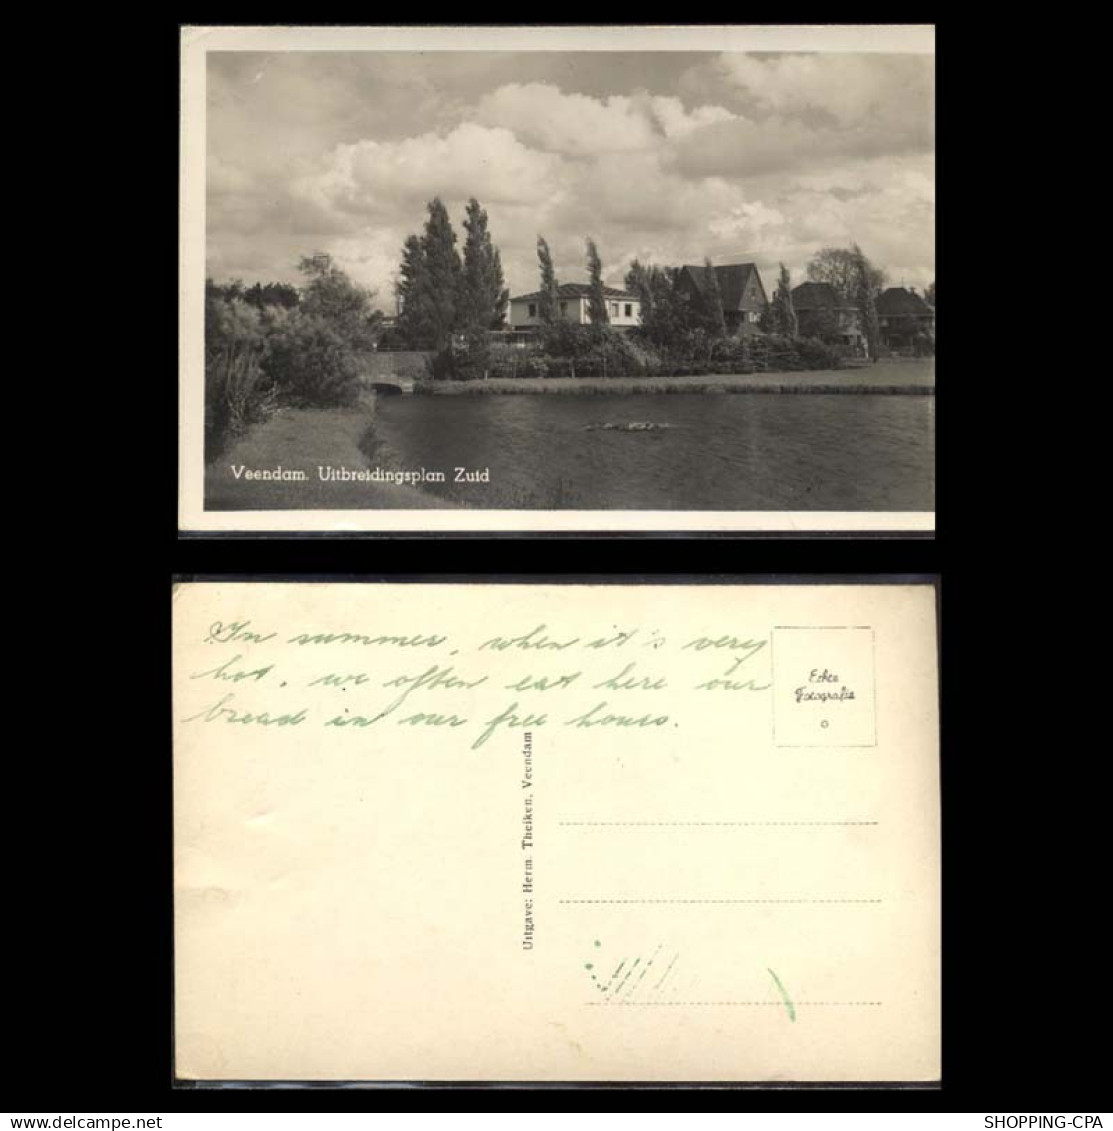 Veendam. Uitbreidingsplan Zuid
In summer, when it's very
hot, we often eat here our
bread in our free hours.
Echte
Fotografie
Uitgave: Herm. Theiken, Veendam
SHOPPING-CPA